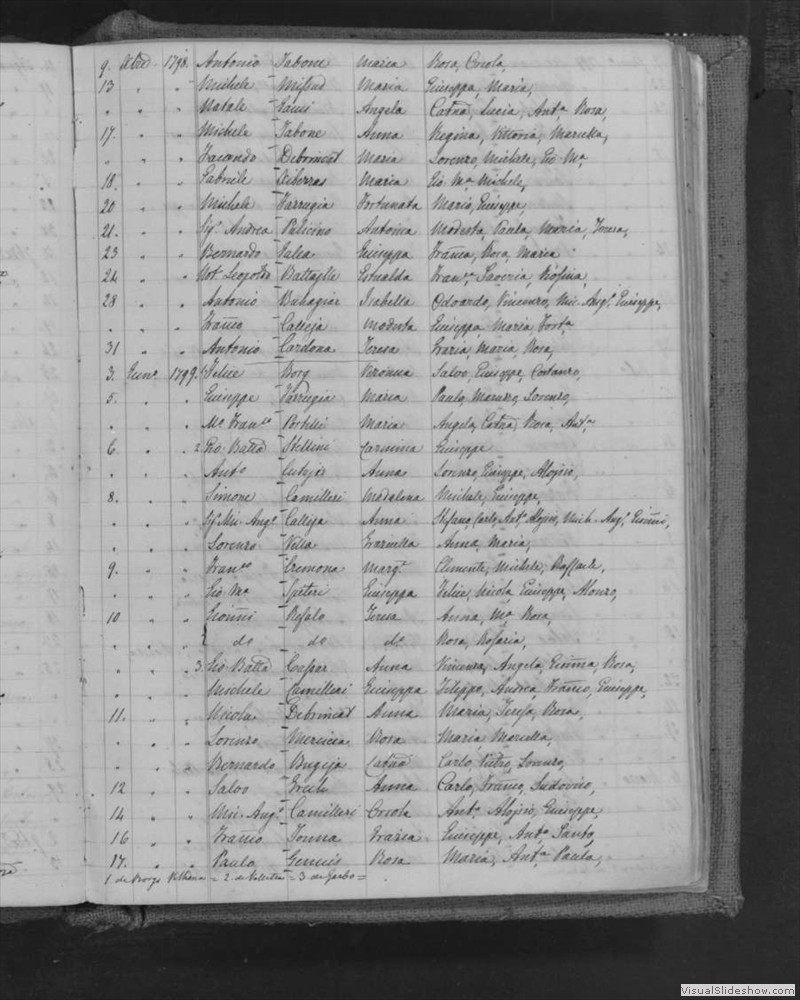 9. Xbre 1798. Antonio Tabone Maria Rosa, Orsola,
13 " " Michele Mifsud Maria Giuseppa, Maria,
" " " Natale Angela Catna, Lucia, Anta Rosa,
17. " " Michele Tabone Anna Regina, Vittoria, Mariella,
" " " Facondo Debrincat Maria Lorenzo, Michele, Gio Ma
18. " " Gabriele Xiberras Maria Gio Ma Michele,
20 " " Michele Farrugia Fortunata Maria, Giuseppe,
21. " " Sigr Andrea Pulicino Antonia Modesta, Paula, Maria, Teresa,
23 " " Bernardo Galea Giuseppa Franca, Rosa, Maria
24 " " Not. Leopoldo Battaglia Fran., Saveria,
28 " " Antonio Buhagiar Isabella Odoardo, Vincenzo, Mic. Ango Giuseppe,
" " " Franco Calleja Modesta Giuseppa Maria Forta
31 " " Antonio Cardona Teresa Grazia, Maria, Rosa,
3. Genn. 1799. 1. Felice Borg Veronica Salvo, Giuseppe, Costanzo,
5. " " Giuseppe Farrugia Maria Paulo, Lorenzo,
" " " Franco Portelli Maria Angela, Catna, Rosa, Anta,
6 " " 2. Gio Batta Stellini Carmina Giuseppe
" " " Anto Cutajar Anna Lorenzo, Giuseppe, Alojsio,
8. " " Simone Camilleri Madalena Michele, Giuseppe,
" " " Mic. Ango Calleja Anna Stefano, Carlo, Anto, Alojsio, Mich. Ango, Gionni,
" " " Lorenzo Vella Graziella Anna, Maria,
9. " " Franco Cremona Margta Clemente, Michele, Raffaele,
" " " Gio Ma Spiteri Giuseppa Felice, Nicola, Giuseppe, Alonzo,
10 " " Gionni Refalo Teresa Anna, Ma Rosa,
" " " do do do Rosa, Rosaria,
" " " 3. Gio Batta Caspar Anna Vincenza, Angela, Gionna, Rosa,
" " " Michele Camilleri Giuseppa Filippo, Andrea, Franco, Giuseppe,
11. " " Nicola Debrincat Anna Maria, Teresa, Rosa,
" " " Lorenzo Mercieca Rosa Maria, Mariella,
" " " Bernardo Bugeja Catna Carlo, Pietro, Lorenzo,
12 " " Salvo Grech Anna Carlo, Franco, Ludovico,
14 " " Mic. Ango Camilleri Orsola Anto, Alojsio, Giuseppe,
16 " " Franco Tonna Grazia Giuseppe, Anto, Santo,
17. " " Paulo Rosa Maria, Anta, Paula,
1. de Borgo Vilhena = 2. de Valletta = 3. de Garbo =
VisualSlideshow.com